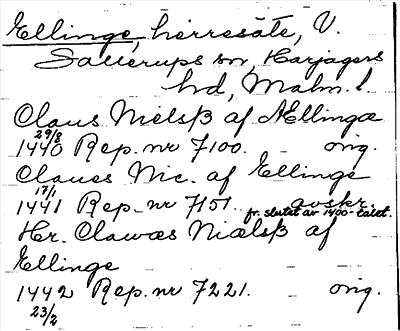 Ellinge, herresäte, V.
Sallerups sn, Harjagers
hd, Malm. l.
Claus Nielsß af Ællingæ
29/8
1440 Rep. nr 7100. orig.
Claues Nic. af Ellinge
17/1
1441 Rep. nr 7151. avskr.
fr. slutet av 1400-talet.
Hr. Clawæs Niælsß af
Ellinge
1442 Rep. nr 7221. orig.
23/2